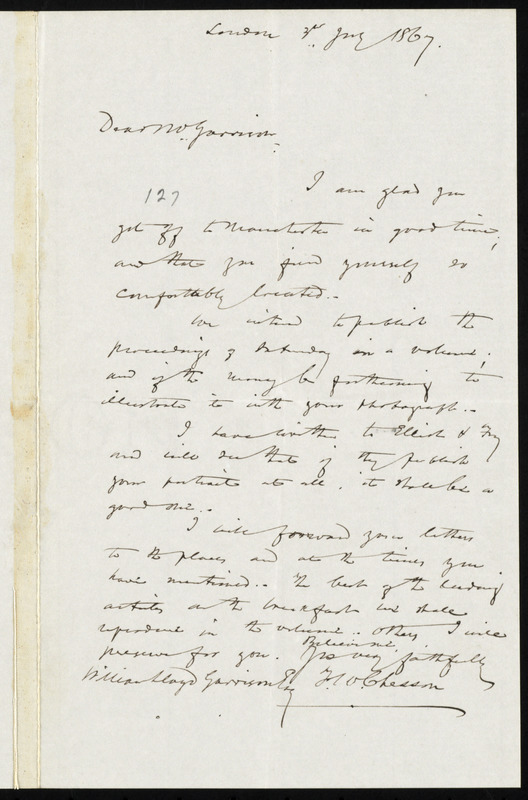 London 3rd July 1867.
Dear Mr. Garrison,
127
I am glad you
got off to Manchester in good time,
and that you find yourself so
comfortably located.-
We intend to publish the
proceedings of Saturday in a volume;
and if the money be forthcoming to
illustrate it with your photograph.-
I have written to Elliott & Fry
and will see that if they publish
your portrait at all, it shall be a
good one.-
I will forward your letters
to the places and at the times you
have mentioned.- The best of the leading
articles on the breakfast we shall
reproduce in the volume. Others I will
preserve for you. Believe me
Yrs very faithfully
F. W. Chesson
William Lloyd Garrison Esq